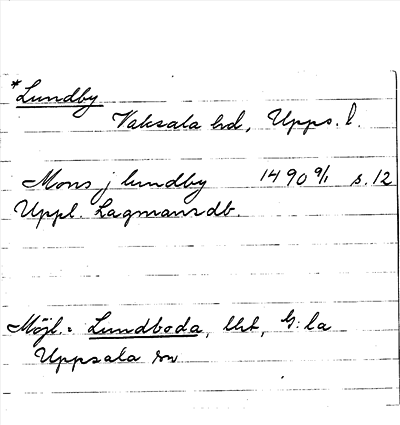 *Lundby
Vaksala hd, Upps. l.
Mons j lundby 1490 9/1 s. 12
Uppl. Lagmansdb.
Möjl. Lundboda, Ust, G:la
Uppsala sn